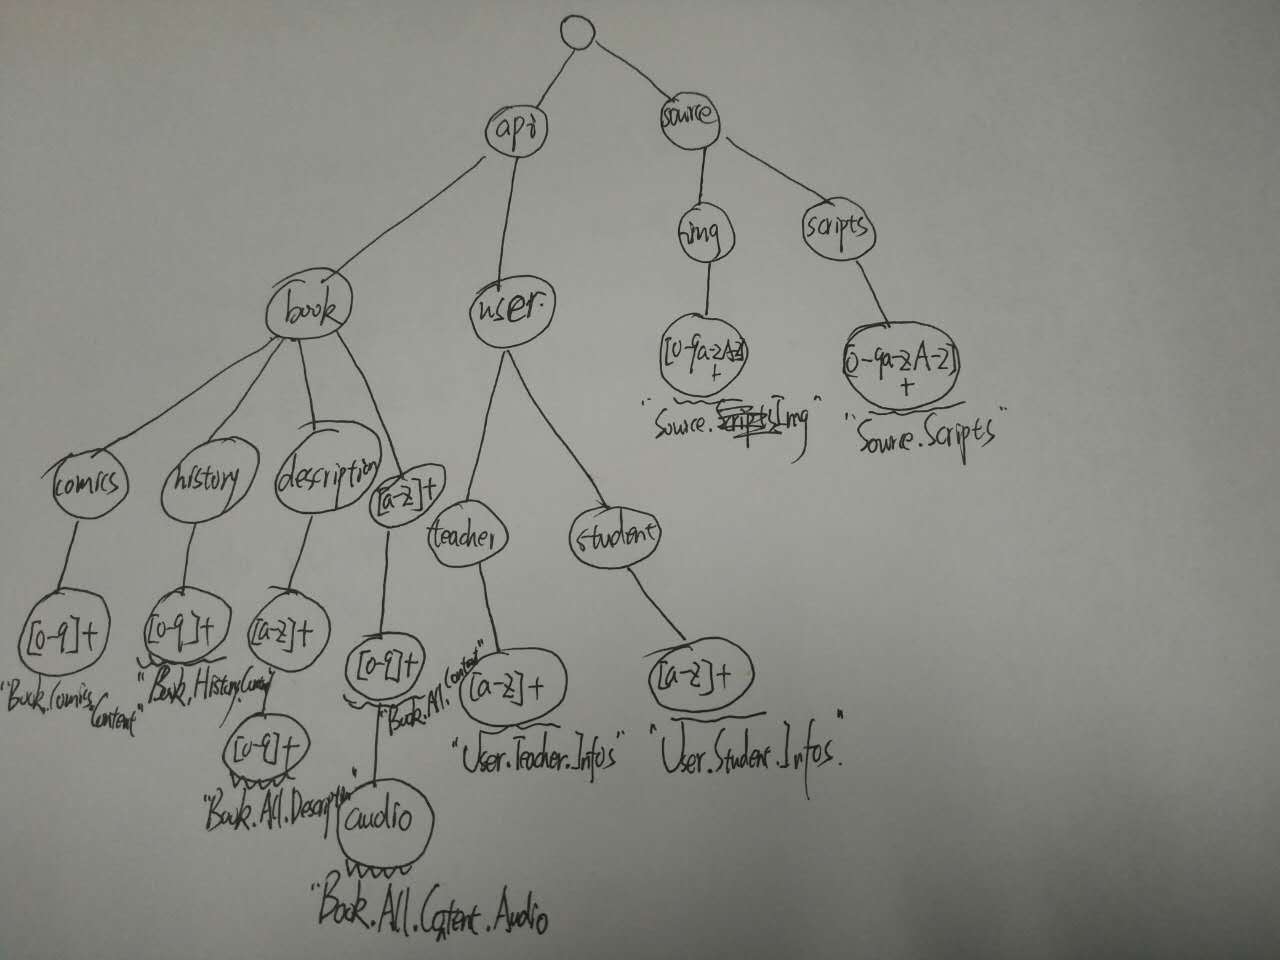 api
source
img
scripts
book
user
[0-9a-zA-Z]
+
[0-9a-zA-Z]
+
"Source.Img"
"Source.Scripts"
comics
history
description
[a-z]+
teacher
student
[0-9]+
[0-9]+
[a-z]+
[0-9]+
[a-z]+
[a-z]+
"Book.Comics.Content"
"Book.History.Content"
"Book.All.Content"
[0-9]+
"User.Teacher.Infos"
"User.Student.Infos."
"Book.All.Description"
audio
"Book.All.Content.Audio